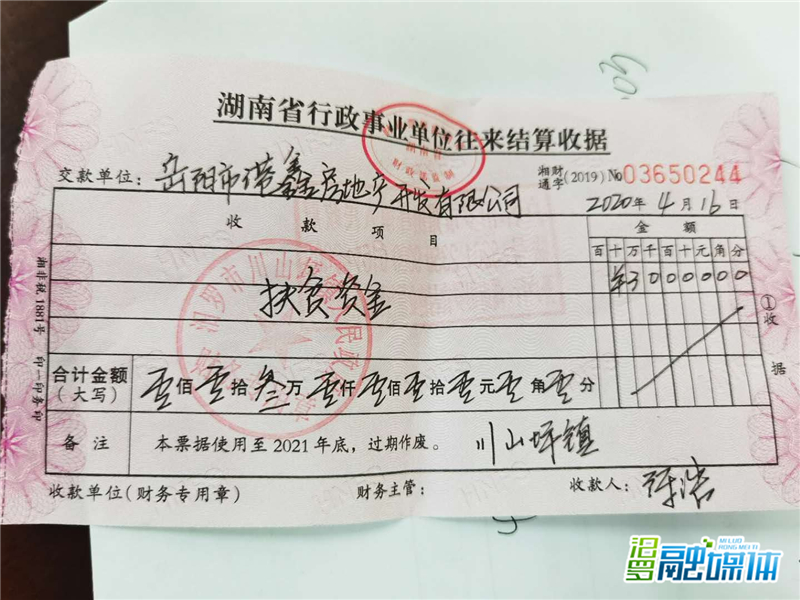 湖南省行政事业单位往来结算收据
交款单位：岳阳市港鑫房地产开发有限公司
湘财通字(2019) №03650244
2020年4月16日
收款项目
金额
百十万千百十元角分
扶贫资金
¥3000000
①收据
合计金额（大写）
零佰零拾叁万零仟零佰零拾零元零角零分
备注
本票据使用至2021年底，过期作废。
川山坪镇
收款单位（财务专用章）
财务主管：
收款人：
湘非税1881号
汨罗市川山坪镇人民政府
汨罗融媒体
MI LUO
RONG MEI TI